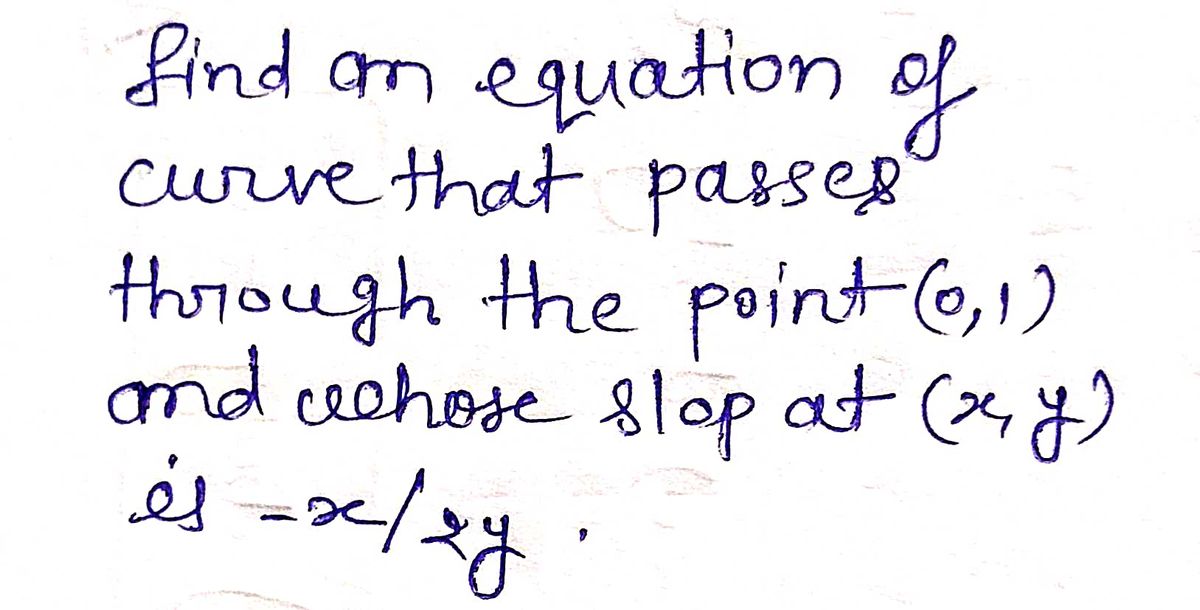 find an equation of
curve that passes
through the point (0,1)
and whose slop at (x, y)
is -x/2y .